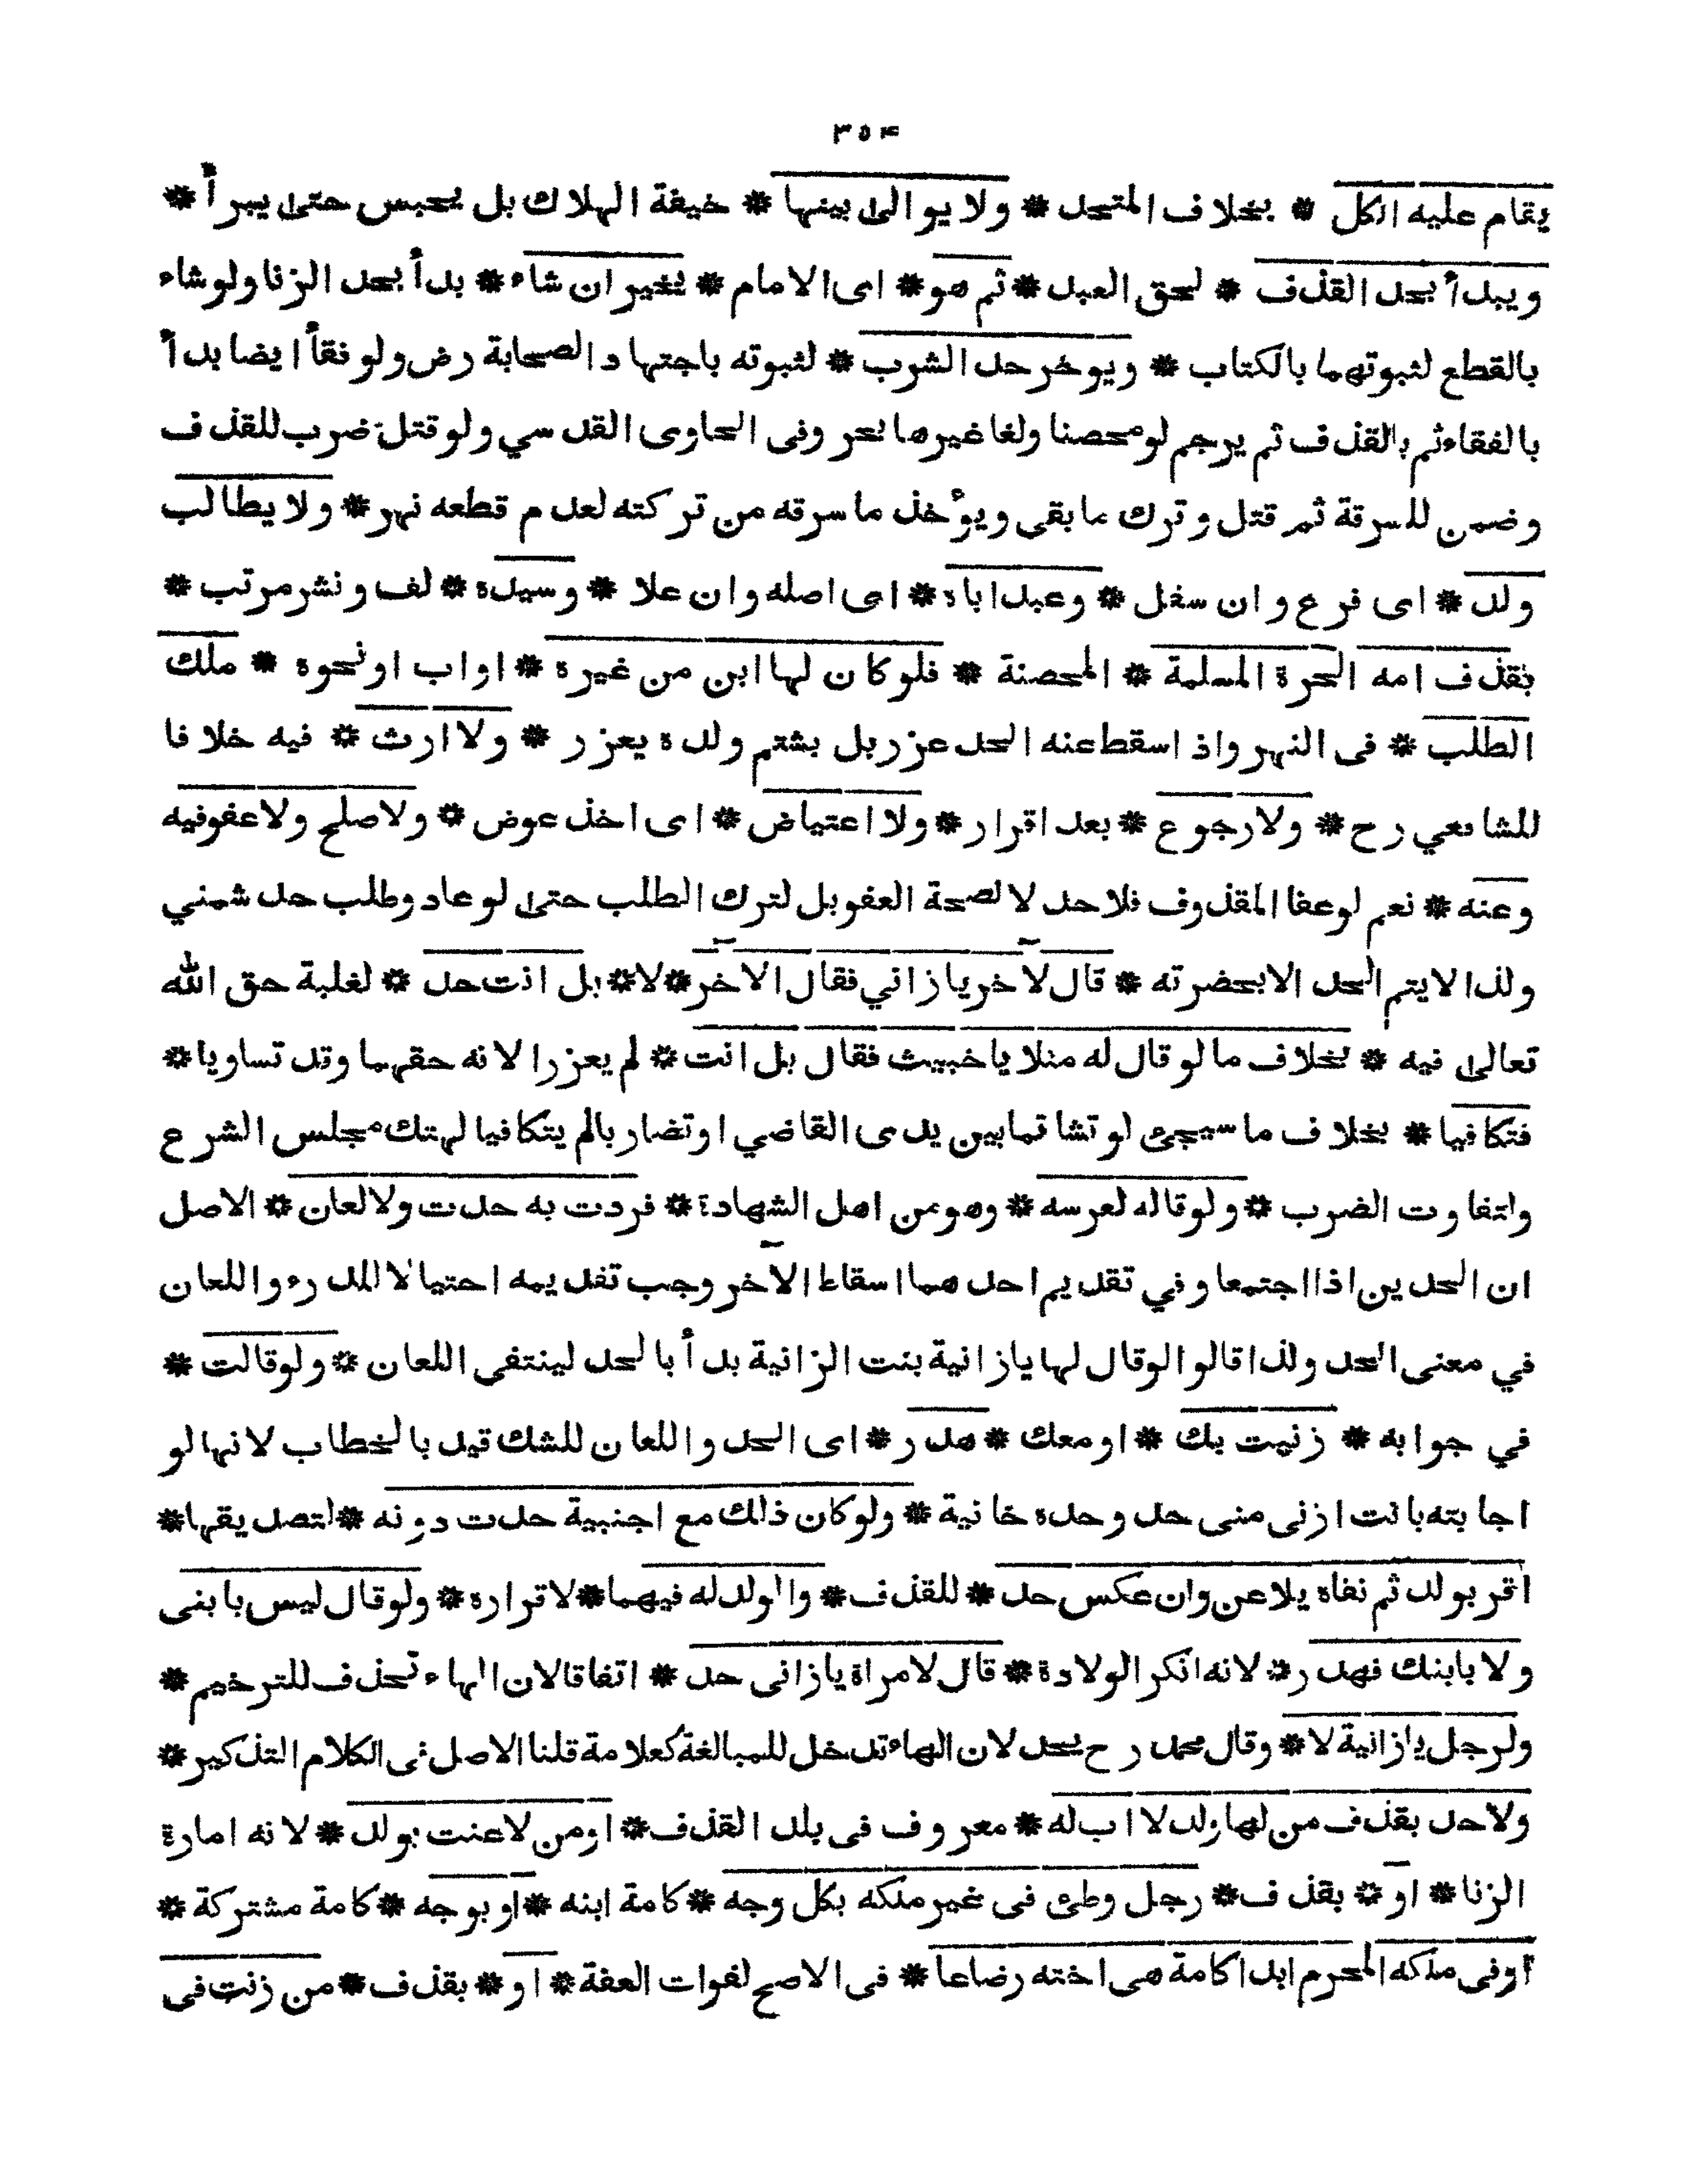 ٣٥۴
يقام عليه الكل * بخلاف المتحد * ولا يوالى بينها * خيفة الهلاك بل يحبس حتى يبرأ *
ويبدأ بحد القذف * لحق العبد * ثم هو * اى الامام * يخير ان شاء * بدأ بحد الزنا ولو شاء
بالقطع لثبوتهما بالكتاب * ويوخر حد الشرب * لثبوته باجتهاد الصحابة رض ولو فقأ ايضا بدأ
بالفقاء ثم بالقذف ثم يرجم لو محصنا ولغا غيرها بحر وفى الحاوى القدسي ولو قتل ضرب للقذف
وضمن للسرقة ثم قتل وترك ما بقى ويؤخذ ما سرقه من تركته لعدم قطعه نهر * ولا يطالب
ولد * اى فرع وان سفل * وعبد اباه * اى اصله وان علا * وسيده * لف ونشر مرتب *
بقذف امه الحرة المسلمة * المحصنة * فلو كان لها ابن من غيره * او اب او نحوه * ملك
الطلب * فى النهر واذا سقط عنه الحد عزر بل بشتم ولده يعزر * ولا ارث * فيه خلافا
للشافعي رح * ولا رجوع * بعد اقرار * ولا اعتياض * اى اخذ عوض * ولا صلح ولا عفو فيه
وعنه * نعم لو عفا المقذوف فلا حد لا لصحة العفو بل لترك الطلب حتى لو عاد وطلب حد شمني
ولذا لا يتم الحد الا بحضرته * قال لآخر يا زاني فقال الآخر * لا * بل انت حد * لغلبة حق الله
تعالى فيه * بخلاف ما لو قال له مثلا يا خبيث فقال بل انت * لم يعزرا لانه حقهما وقد تساويا *
فتكافيا * بخلاف ما سيجئ لو تشاتما بين يدى القاضي او تضاربا لم يتكافيا لهتك مجلس الشرع
ولتفاوت الضرب * ولو قاله لعرسه * وهو من اهل الشهادة * فردت به حدت ولا لعان * الاصل
ان الحدين اذا اجتمعا وفي تقديم احدهما اسقاط الآخر وجب تقديمه احتيالا للدرء واللعان
في معنى الحد ولذا قالوا لو قال لها يا زانية بنت الزانية بدأ بالحد لينتفى اللعان * ولو قالت *
في جوابه * زنيت بك * او معك * هدر * اى الحد واللعان للشك قيد بالخطاب لانها لو
اجابته بانت ازنى منى حد وحده خانية * ولو كان ذلك مع اجنبية حدت دونه * لتصديقها *
اقر بولد ثم نفاه يلاعن وان عكس حد * للقذف * والولد له فيهما * لاقراره * ولو قال ليس بابنى
ولا بابنك فهدر * لانه انكر الولادة * قال لامراة يا زانى حد * اتفاقا لان الهاء تحذف للترخيم *
ولرجل يا زانية لا * وقال محمد رح يحد لان الهاء تدخل للمبالغة كعلامة قلنا الاصل فى الكلام التذكير *
ولا حد بقذف من لها ولد لا اب له * معروف فى بلد القذف * او من لاعنت بولد * لانه امارة
الزنا * او * بقذف * رجل وطئ فى غير ملكه بكل وجه * كامة ابنه * او بوجه * كامة مشتركة *
أو فى ملكه المحرم ابدا كامة هى اخته رضاعا * فى الاصح لفوات العفة * او * بقذف * من زنت فى